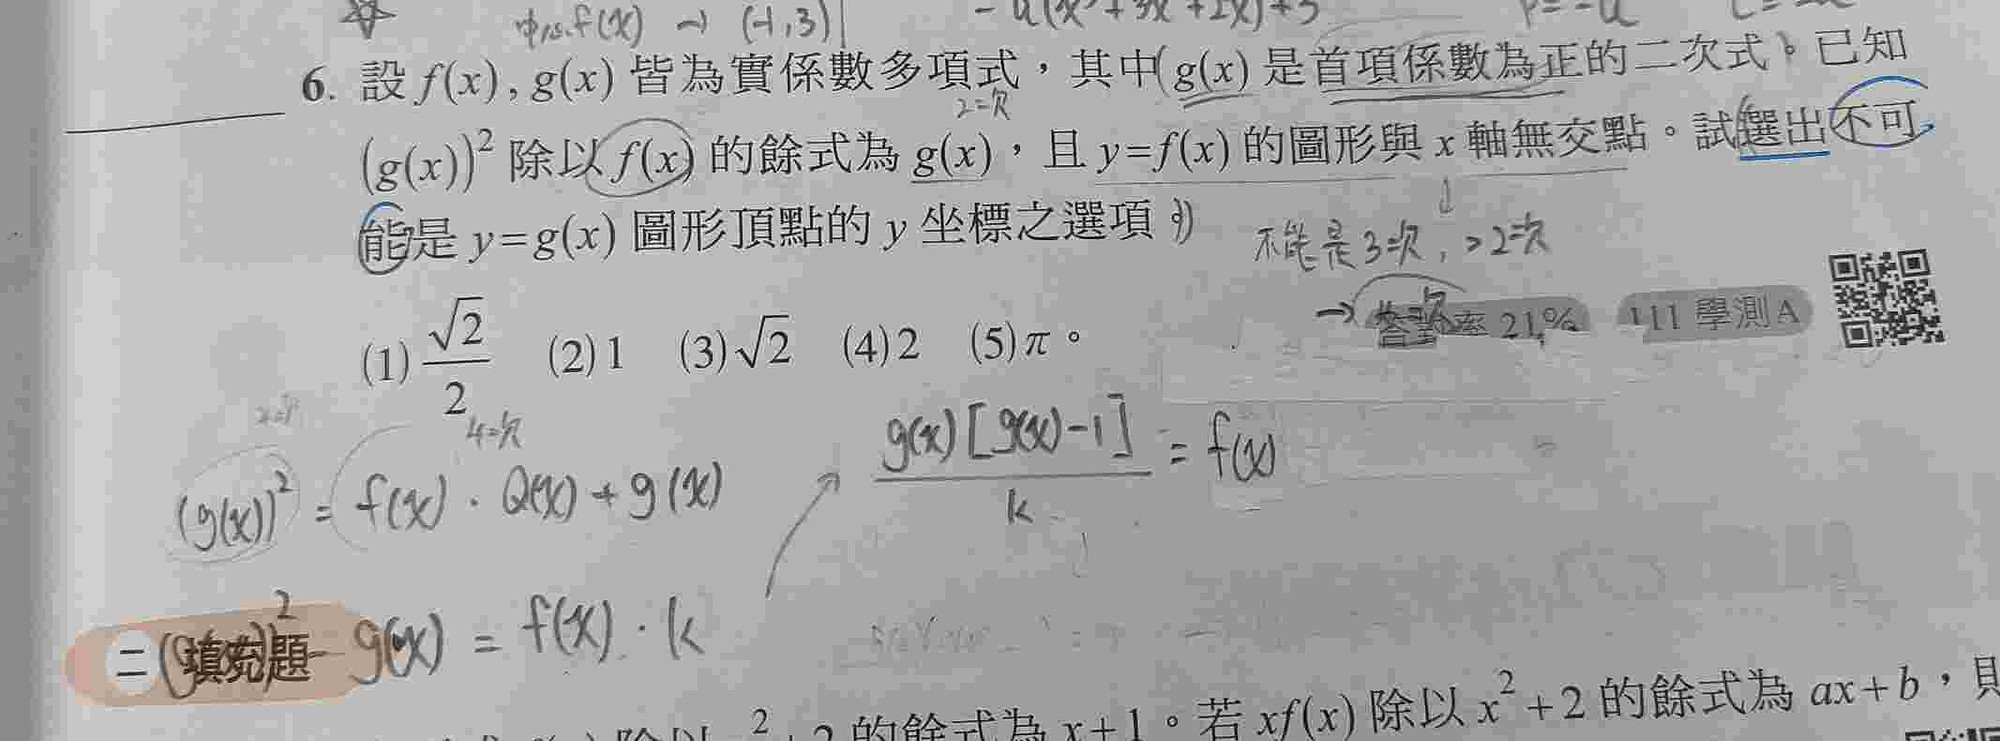 中心f(x) → (-1,3)
6. 設 f(x), g(x) 皆為實係數多項式,其中 g(x) 是首項係數為正的二次式。已知
2次
(g(x))² 除以 f(x) 的餘式為 g(x),且 y=f(x) 的圖形與 x 軸無交點。試選出不可
能是 y=g(x) 圖形頂點的 y 坐標之選項。
不能是3次, >2次
(1) √2/2 (2) 1 (3) √2 (4) 2 (5) π。
答對率 21% 111 學測A
4次
(g(x))² = f(x)·Q(x)+g(x)
g(x)[g(x)-1]/k = f(x)
二 填充題
(g(x))² - g(x) = f(x)·k
的餘式為 x+1。若 xf(x) 除以 x²+2 的餘式為 ax+b,則